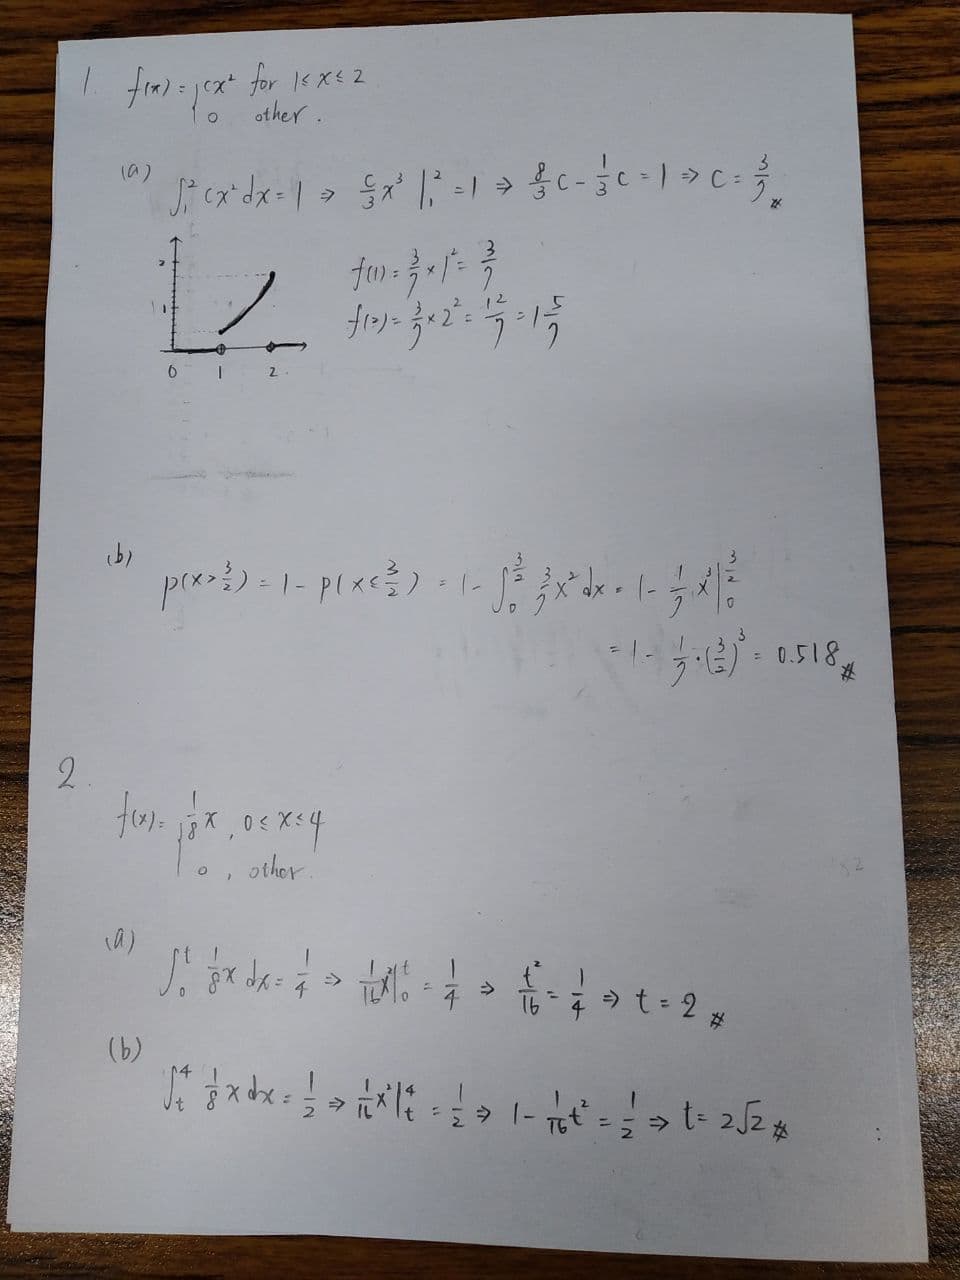 1. f(x) = { cx² for 1 ≤ x ≤ 2
0 other.
(a)
∫₁² cx² dx = 1 ⇒ c/3 x³ |₁² = 1 ⇒ 8/3 c - 1/3 c = 1 ⇒ c = 3/7 #
2
1
0 1 2
f(1) = 3/7 × 1² = 3/7
f(2) = 3/7 × 2² = 12/7 = 1 5/7
(b)
p(x > 3/2) = 1 - p(x ≤ 3/2) = 1 - ∫₀^(3/2) 3/7 x² dx = 1 - 1/7 x³ |₀^(3/2)
= 1 - 1/7 · (3/2)³ = 0.518 #
2.
f(x) = { 1/8 x, 0 ≤ x ≤ 4
0, other.
(a)
∫₀ᵗ 1/8 x dx = 1/4 ⇒ 1/16 x² |₀ᵗ = 1/4 ⇒ t²/16 = 1/4 ⇒ t = 2 #
(b)
∫ₜ⁴ 1/8 x dx = 1/2 ⇒ 1/16 x² |ₜ⁴ = 1/2 ⇒ 1 - 1/16 t² = 1/2 ⇒ t = 2√2 #